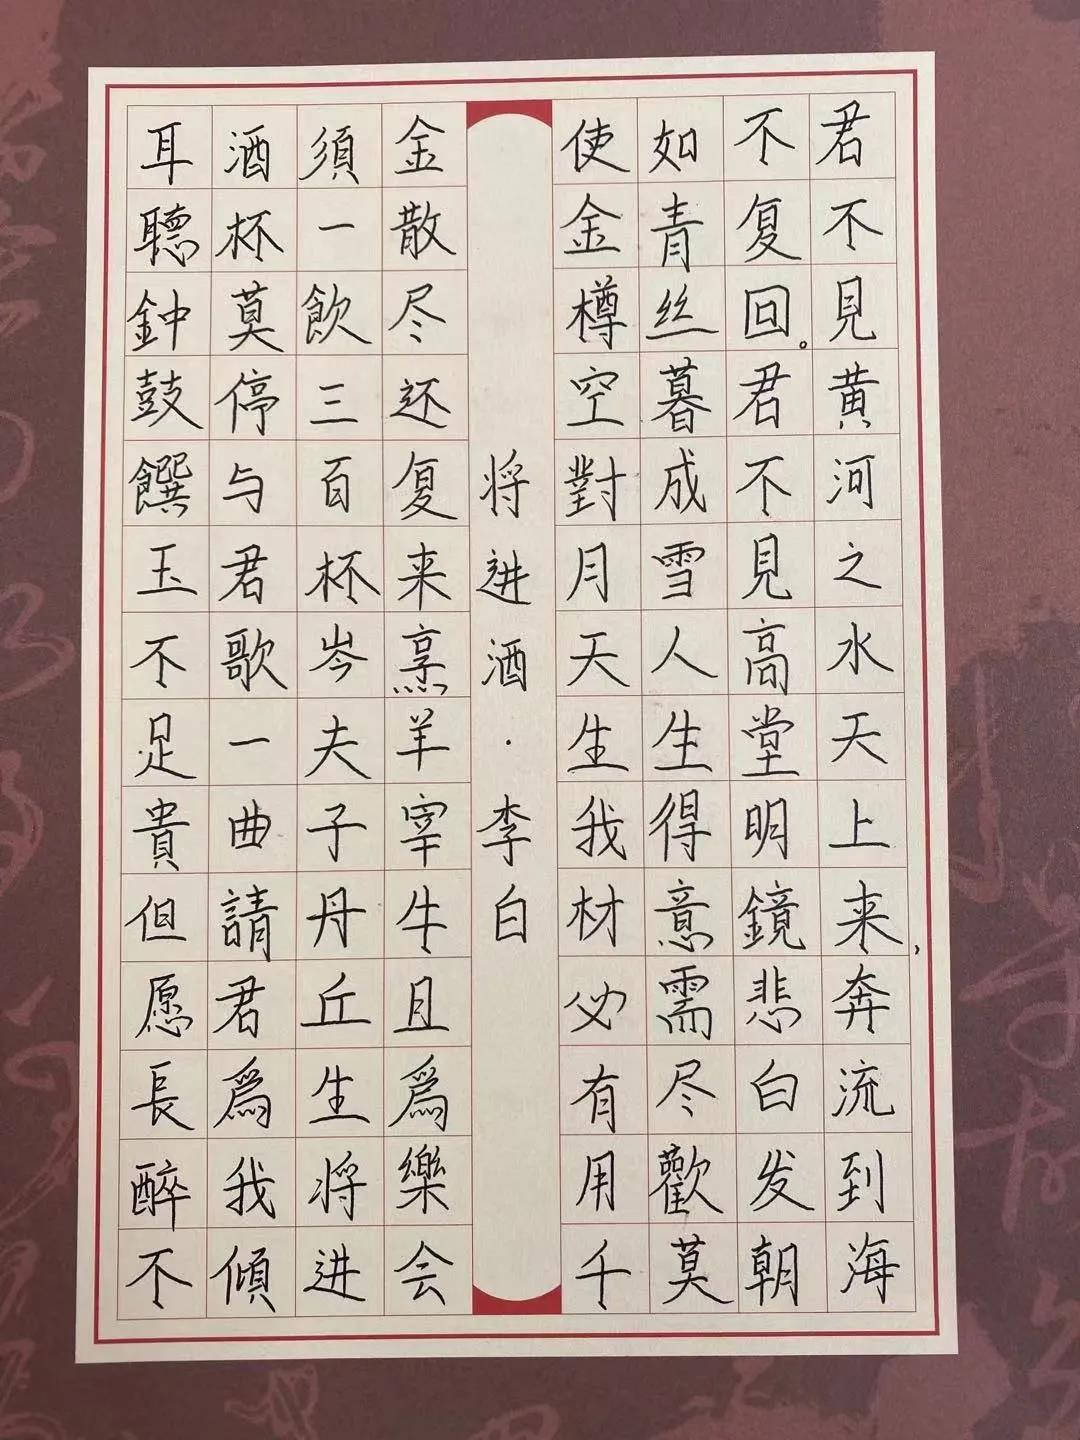 君不見黄河之水天上来,奔流到海
不复回。君不見高堂明鏡悲白发朝
如青丝暮成雪人生得意需尽歡莫
使金樽空對月天生我材必有用千
将进酒·李白
金散尽还复来烹羊宰牛且爲樂会
須一飲三百杯岑夫子丹丘生将进
酒杯莫停与君歌一曲請君爲我傾
耳聽鈡鼓饌玉不足貴但愿長醉不